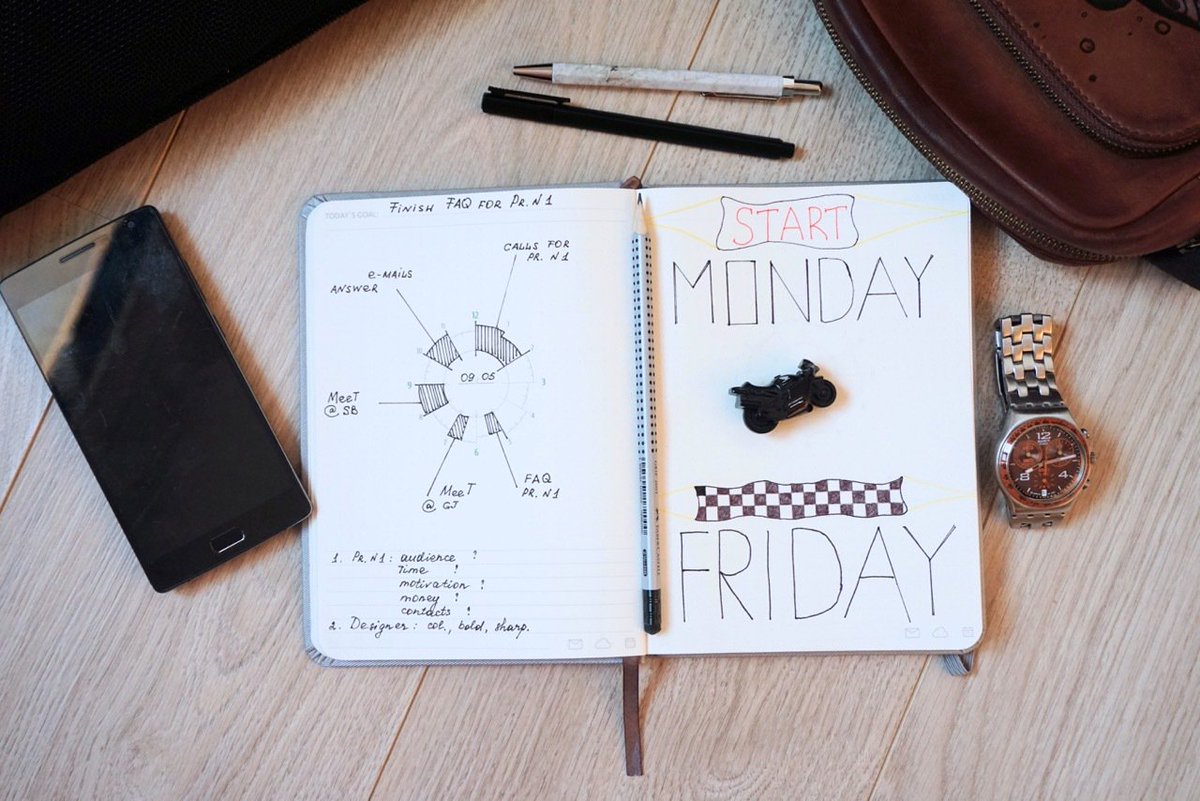 TODAY'S GOAL:
FINISH FAQ FOR PR. N1
CALLS FOR
PR. N1
e-MAILS
ANSWER
12
1
2
3
4
6
7
9
10
11
09.05
MeeT
@ SB
MeeT
@ GJ
FAQ
PR. N1
1. PR. N1: audience ?
Time ?
motivation ?
money ?
contacts ?
2. Designer: col., bold, sharp.
START
MONDAY
FRIDAY
12
4
8